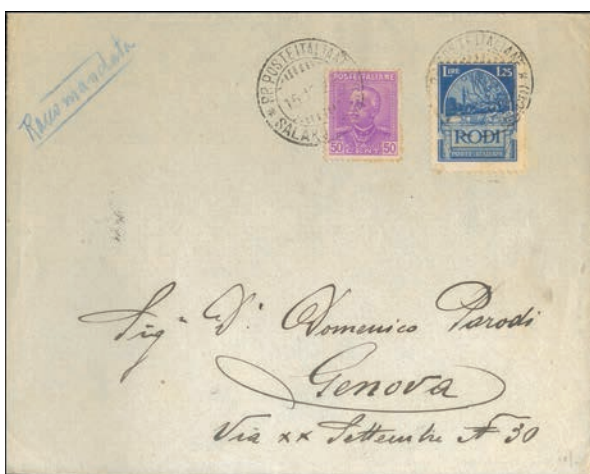 Raccomandata
R.R. POSTE ITALIANE
SALAKO
POSTE ITALIANE
50 CENT 50
LIRE 1.25
RODI
Sigʳ Dʳ Domenico Parodi
Genova
Via XX Settembre N 30